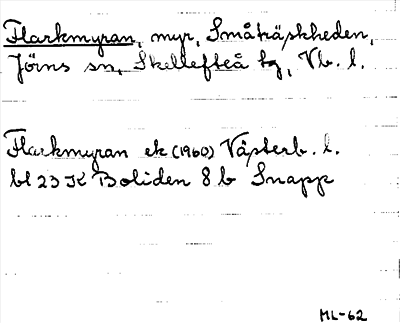 Flarkmyran, myr, Småträskheden,
Jörns sn, Skellefteå tg, Vb. l.
Flarkmyran ek (1960) Västerb. l.
bl 23 K Boliden 8 b Snapp
ML-62